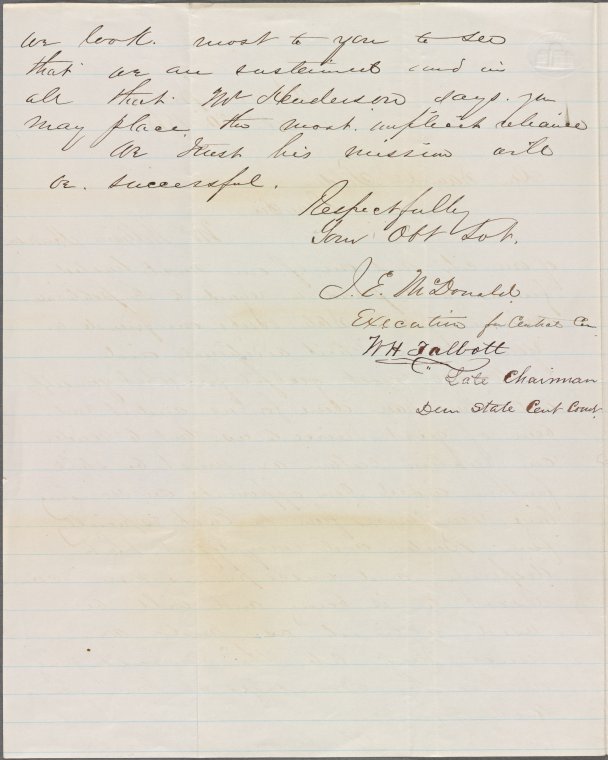 we look. most to you to see
that we are sustained and in
all that Mr Henderson says. you
may place. the most. implicit reliance
We trust his mission will
be. successful.
Respectfully
Your Obt Svt.
J. E. McDonald
Executive for Central Com
W H Talbott
Late Chairman
Dem State Cent Comt.